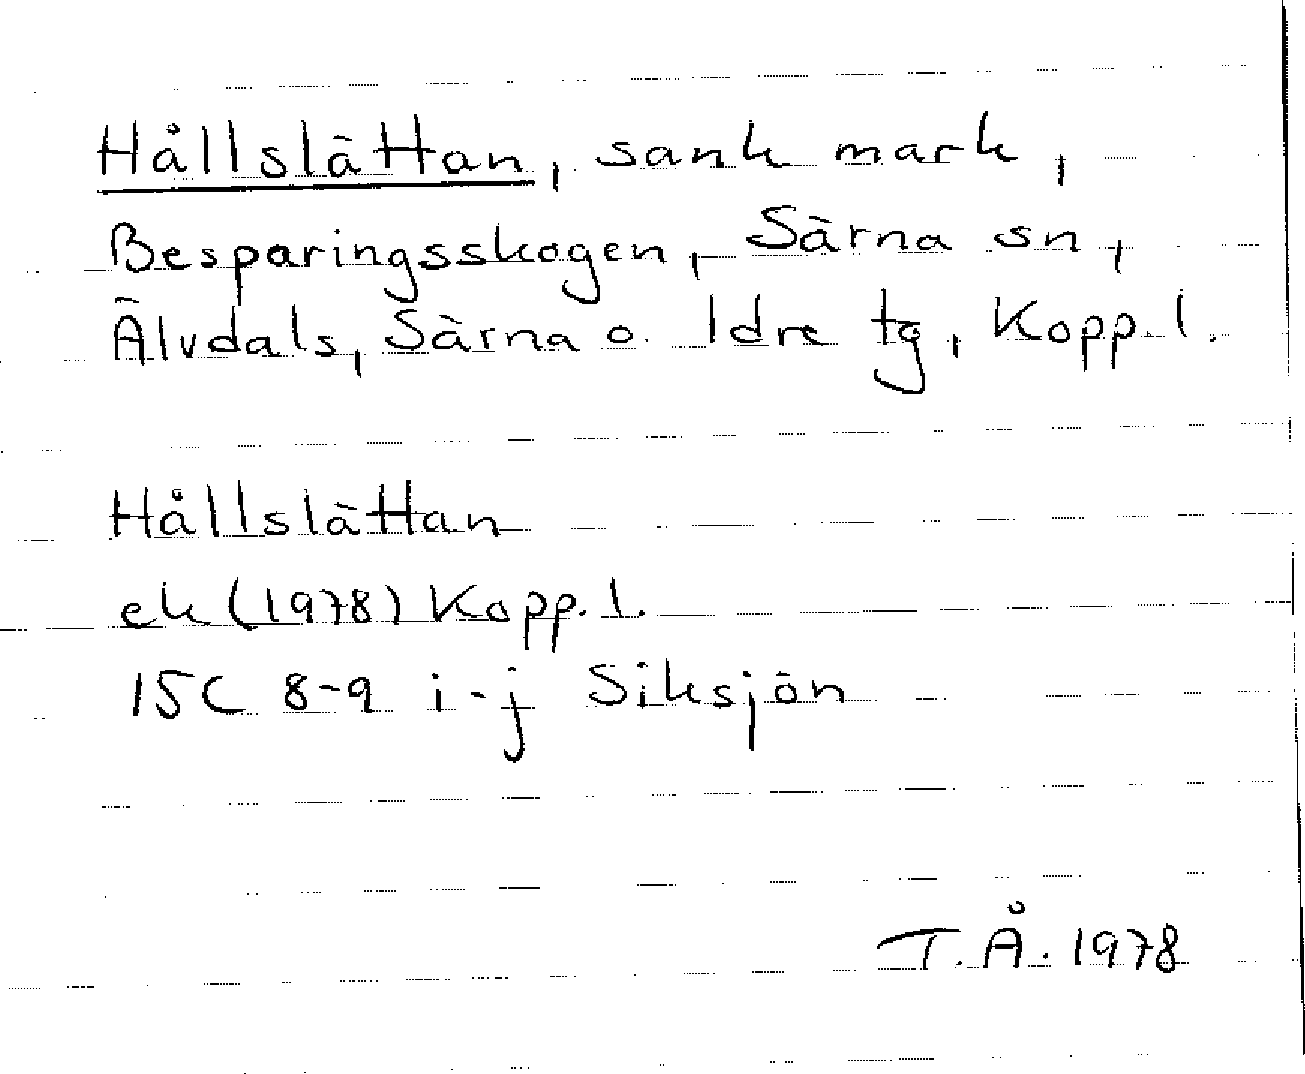 Hållslättan, sank mark,
Besparingsskogen, Särna sn,
Älvdals, Särna o. Idre tg, Kopp. l.
Hållslättan
ek (1978) Kopp. l.
15C 8-9 i-j Siksjön
T.Å. 1978